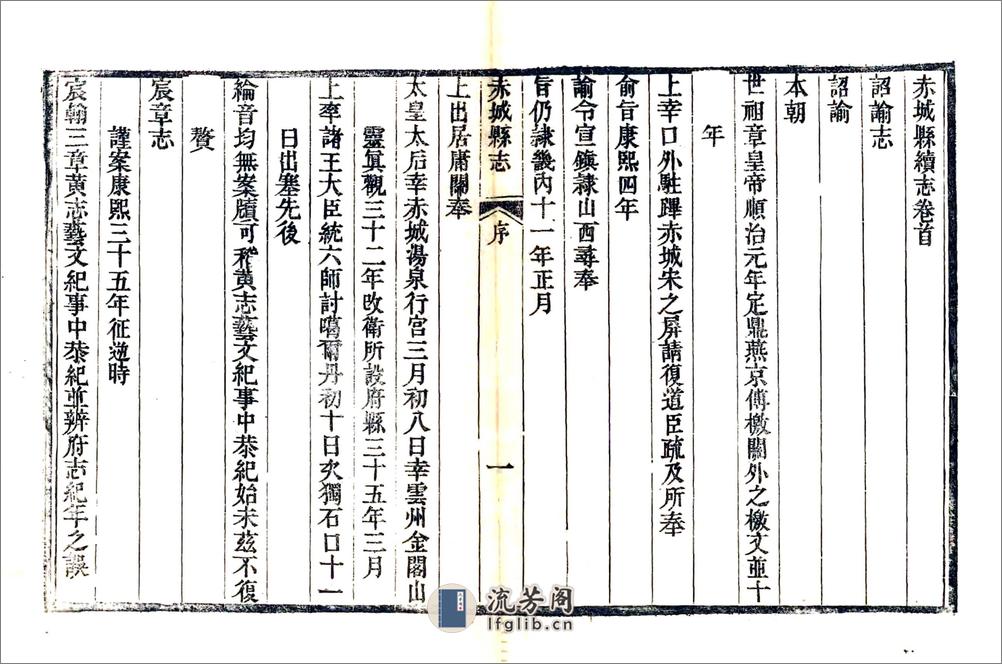 赤城縣續志卷首
詔諭志
詔諭
本朝
世祖章皇帝順治元年定鼎燕京傳檄關外之檄文並十
年
上幸口外駐蹕赤城宋之屏請復道臣疏及所奉
俞旨康熙四年
諭令宣鎮隷山西尋奉
旨仍隷畿內十一年正月
赤城縣志
序
一
上出居庸關奉
太皇太后幸赤城湯泉行宮三月初八日幸雲州金閣山
靈眞觀三十二年改衛所設府縣三十五年三月
上率諸王大臣統六師討噶爾丹初十日次獨石口十一
日出塞先後
綸音均無案牘可稽黃志藝文紀事中恭紀始末茲不復
贅
宸章志
謹案康熙三十五年征逆時
宸翰三章黃志藝文紀事中恭紀並辨府志紀年之誤
流芳阁
lfglib.cn